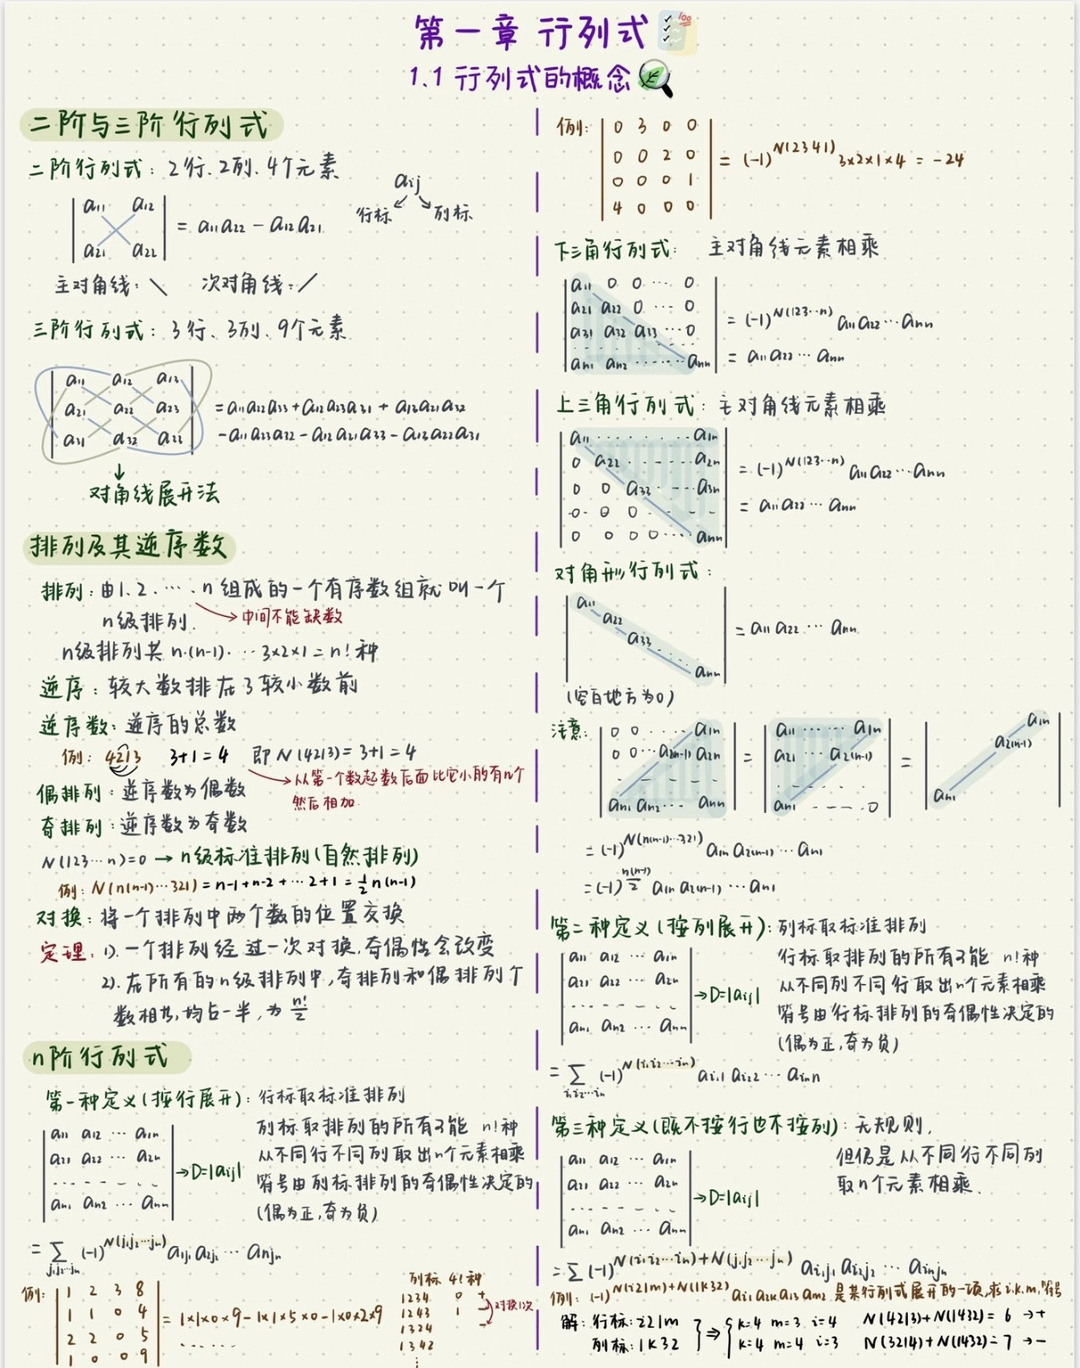 第一章 行列式
1.1 行列式的概念
二阶与三阶行列式
二阶行列式: 2行、2列、4个元素
aij
行标 列标
a11 a12
a21 a22
= a11a22 - a12a21
主对角线: ╲ 次对角线: ╱
三阶行列式: 3行、3列、9个元素
a11 a12 a13
a21 a22 a23
a31 a32 a33
对角线展开法
排列及其逆序数
排列: 由1、2、…、n组成的一个有序数组就叫一个
n级排列.
→中间不能缺数
n级排列共 n·(n-1)·…3×2×1=n!种
逆序: 较大数排在了较小数前
逆序数: 逆序的总数
例: 4213 3+1=4 即N(4213)=3+1=4
→从第一个数起数后面比它小的有几个
然后相加.
偶排列: 逆序数为偶数
奇排列: 逆序数为奇数
N(123…n)=0 → n级标准排列(自然排列)
例: N(n(n-1)…321)=n-1+n-2+…2+1=½n(n-1)
对换: 将一个排列中两个数的位置交换
定理: 1). 一个排列经过一次对换,奇偶性会改变
2). 在所有的n级排列中,奇排列和偶排列个
数相等,均占一半,为 n!/2
n阶行列式
第一种定义(按行展开): 行标取标准排列
列标取排列的所有可能 n!种
从不同行不同列取出n个元素相乘
符号由列标排列的奇偶性决定的
(偶为正,奇为负)
a11 a12 … a1n
a21 a22 … a2n
an1 an2 … ann
→D=|aij|
= Σ (-1)^N(j1j2…jn) a1j1 a2j2 … anjn
j1j2…jn
例:
1 2 3 8
1 1 0 4
2 2 0 5
1 0 0 9
= 1×1×0×9-1×1×5×0-1×0×2×9
……
列标 4!种
1234 0 +
1243 1 -
1324
1342
⋮
对换1次
例:
0 3 0 0
0 0 2 0
0 0 0 1
4 0 0 0
= (-1)^N(2341) 3×2×1×4 = -24
下三角行列式: 主对角线元素相乘
a11 0 0 … 0
a21 a22 0 … 0
a31 a32 a13 … 0
an1 an2 …… ann
= (-1)^N(123…n) a11a22…ann
= a11a22…ann
上三角行列式: 主对角线元素相乘
a11 …… a1n
0 a22 …… a2n
0 0 a33 … a3n
0 0 0
0 0 0 0 … ann
= (-1)^N(123…n) a11a22…ann
= a11a22…ann
对角形行列式:
a11
a22
a33
ann
= a11a22…ann
(空白地方为0)
注意:
0 0 … a1n
0 0 … a2(n-1) a2n
an1 an2 … ann
=
a11 …… a1n
a21 … a2(n-1)
an1 …… 0
=
a1n
a2(n-1)
an1
= (-1)^N(n(n-1)…321) a1n a2(n-1) … an1
= (-1)^n(n-1)/2 a1n a2(n-1) … an1
第二种定义(按列展开): 列标取标准排列
行标取排列的所有可能 n!种
从不同列不同行取出n个元素相乘
符号由行标排列的奇偶性决定的
(偶为正,奇为负)
a11 a12 … a1n
a21 a22 … a2n
an1 an2 … ann
→D=|aij|
= Σ (-1)^N(i1i2…in) ai11 ai22 … ainn
i1i2…in
第三种定义(既不按行也不按列): 无规则,
但仍是从不同行不同列
取n个元素相乘.
a11 a12 … a1n
a21 a22 … a2n
an1 an2 … ann
→D=|aij|
= Σ (-1)^N(i1i2…in)+N(j1j2…jn) ai1j1 ai2j2 … ainjn
例: (-1)^N(i21m)+N(1k32) ai1 a2k a13 am2 是某行列式展开的一项,求i.k.m,符号
解: 行标: i21m
列标: 1k32
⇒ k=4 m=3 i=4 N(4213)+N(1432)=6 → +
k=4 m=4 i=3 N(3214)+N(1432)=7 → -